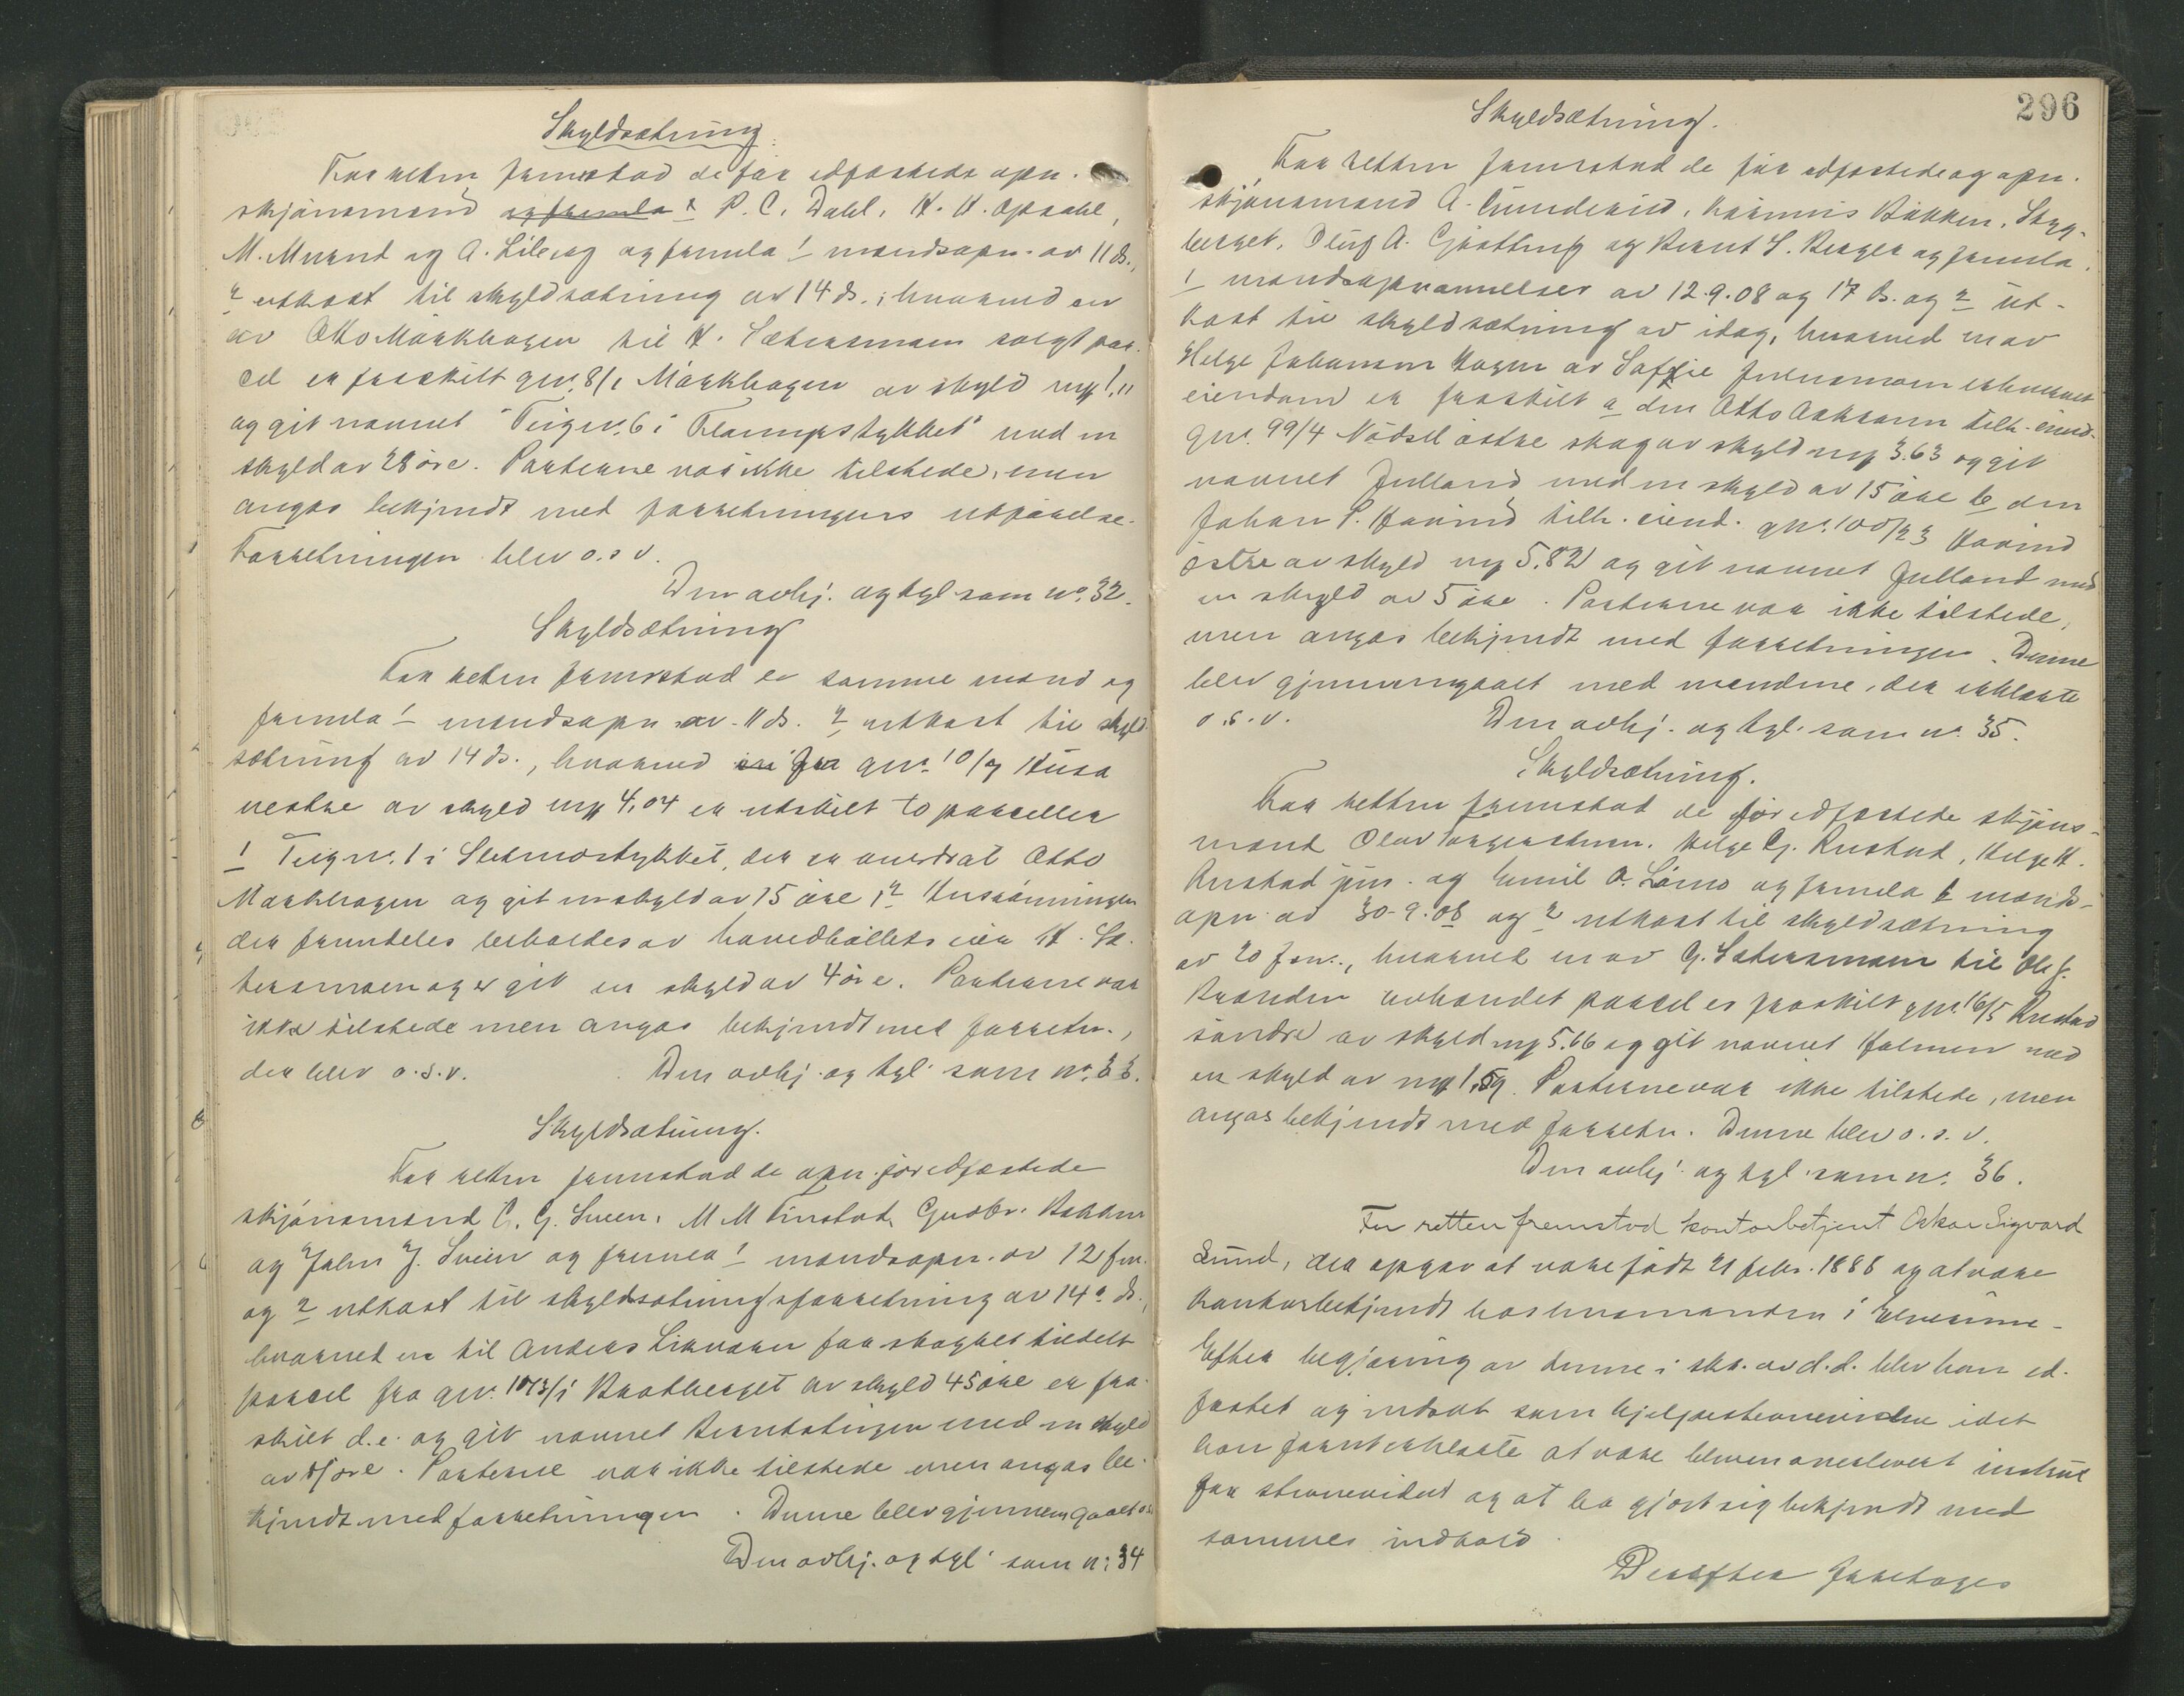 Skyldsætning.
For retten fremstod de før edfæstede opn.
skjönsmænd og fremla 1 P. C. Dahl, H. H. Opsahl,
M. Myrend og A. Lileng og fremla 1 mandsopn. av 11 ds.,
2 utkast til skyldsætning av 14 ds., hvorved en
av Otto Mörkhagen til H. Sætersmoen solgt par-
cel er fraskilt gnr. 8/1 Mörkhagen av skyld mk 1,11
og git navnet "Teig nr. 6 i Flaempstykket" med en
skyld av 28 öre. Parterne var ikke tilstede, men
angas bekjendt med forretningens utförelse.
Forretningen blev o. s. v.
Den avhj. og tgl. som nr. 32.
Skyldsætning
For retten fremstod er samme mænd og
fremla 1 mandsopn. av 11 ds. 2 utkast til skyld-
sætning av 14 ds., hvorved en fra gnr. 10/7 Husa
vestre av skyld mk 4,04 er utskilt to parceller
1 Teig nr. 1 i Sletmostykket, der er overdrat Otto
Mörkhagen og git en skyld av 15 öre, 2
der fremdeles beholdes av hovedbøllets eier H. Sæ-
tersmoen og er git en skyld av 4 öre. Parterne var
ikke tilstede men angas bekjendt med forretn.,
der blev o. s. v. Den avhj. og tgl. som nr. 33.
Skyldsætning.
For retten fremstod de opn. før edfæstede
skjönsmænd C. G. Sveen, M M Finstad, Gudbr. Bakken
og John J. Sveen og fremla 1 mandsopn. av 12 f.m.
og 2 utkast til skyldsætningsforretning av 14 ds.,
hvorved en til Anders Liknaven fra skogvet tildelt
parcel fra gnr. 103/1 Bratberget av skyld 45 öre er fra-
skilt d. e. og git navnet med en skyld
av öre. Parterne var ikke tilstede men angas be-
kjendt med forretningen. Denne blev gjennemgaaet o.s.v.
Den avhj. og tgl. som nr. 34
296
Skyldsætning.
For retten fremstod de før edfæstede og opn.
skjönsmænd A. Gunderud, Bakken, Skyg-
berget, Oluf A. Gjöttrup og Bernt S. Berger og fremla
1 mandsopnævnelser av 12.9.08 og 17 ds. og 2 ut-
kast til skyldsætning av idag, hvorved en av
Helge Johansen Hagen av Saffie Svensmoen erhvervet
eiendom er fraskilt a den Otto Askosen tilh. eiend.
gnr. 99/4 Nödset östre skog av skyld mk 3.63 og git
navnet Julland med en skyld av 15 öre b den
Johan P. Havind tilh. eiend. gnr. 100/23 Havind
östre av skyld mk 5,82 og git navnet Julland med
en skyld av 5 öre. Parterne var ikke tilstede,
men angas bekjendt med forretningen. Denne
blev gjennemgaaet med mændene, der erklærte
o. s. v. Den avhj. og tgl. som nr. 35.
Skyldsætning.
For retten fremstod de før edfæstede skjöns-
mænd Olav Torgerstuen, Helge Cj. Rustad, Helge H.
Rustad jun. og Emil A. Lömo og fremla 1 mands-
opn. av 30-9-08 og 2 utkast til skyldsætning
av 20 f.m., hvorved en av G. Sætersmoen til Ole J.
Braaden avhændet parcel er fraskilt gnr. 16/5 Rustad
söndre av skyld mk 5.66 og git navnet Holmen med
en skyld av mk 1,59. Parterne var ikke tilstede, men
angas bekjendt med forretn. Denne blev o. s. v.
Den avhj. og tgl. som nr. 36.
For retten fremstod kontorbetjent Oskar Sigvard
Lund, der opgav at være født 21 febr. 1886 og at være
kontorbetjendt hos lensmanden i Elverum.
Efter begjæring av denne i skr. av d. d. blev han ed-
fæstet og indsat som hjelpestevnevidne idet
han forut erklærte at være bleven overlevert instruk
for stevnevidner og at ha gjort sig bekjendt med
sammes indhold.
Derefter foretoges